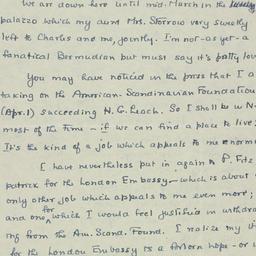 we are down here until mid-March in the
palazzo which my aunt Mrs. Storrow very sweetly
left to Charles and me, jointly. I'm not-as yet-a
fanatical Bermudian but must say it's pretty lov
You may have noticed in the press that I a
taking on the American-Scandinavian Foundation
(Apr.1) succeeding H. G. Leach. So I shall be in N.
most of the time – if we can find a place to live:
It's the kind of a job which appeals to me enorm
I have nevertheless put in again to P. Fitz
patrick for the London Embassy – which is about
only other job which appeals to me even more;
and one for which I would feel justified in withdra
ing from the Am. Scand. Found. I realize my
for the London Embassy is a forlorn hope – or